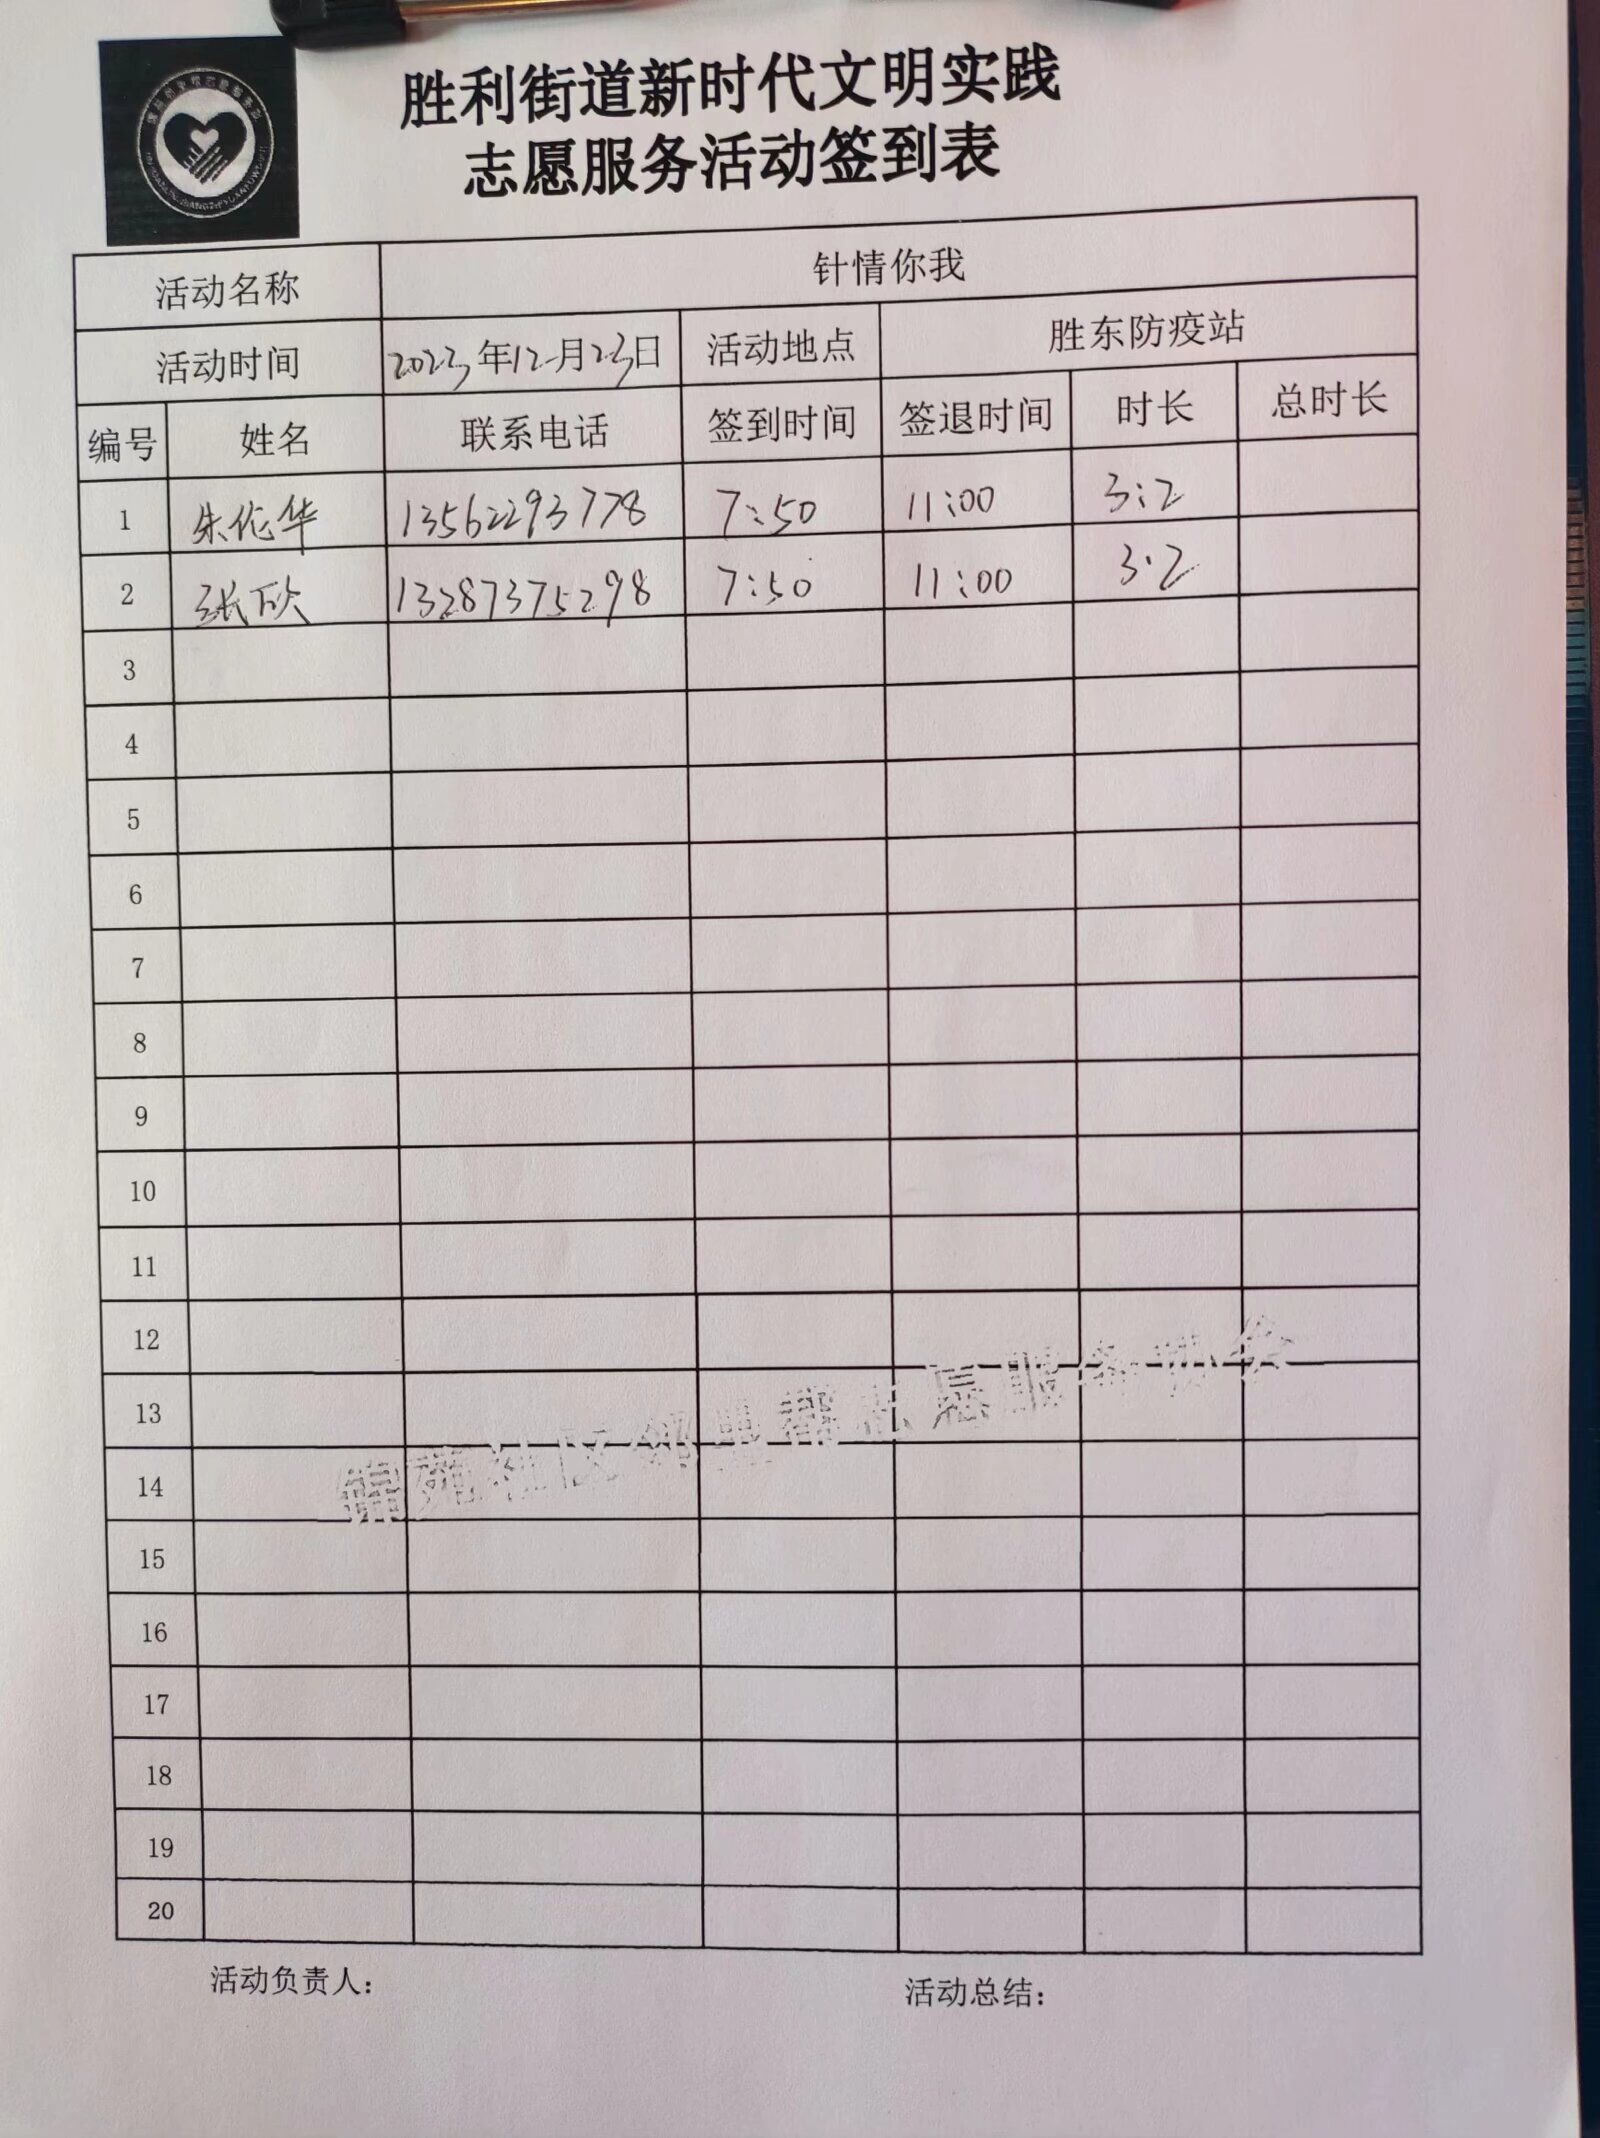 胜利街道新时代文明实践
志愿服务活动签到表
活动名称 针情你我
活动时间 2023年12月23日 活动地点 胜东防疫站
编号 姓名 联系电话 签到时间 签退时间 时长 总时长
1 朱伦华 13562293778 7:50 11:00 3:2
2 张欣 13287375298 7:50 11:00 3.2
3
4
5
6
7
8
9
10
11
12
13
14
15
16
17
18
19
20
锦苑社区邻里帮志愿服务协会
活动负责人： 活动总结：